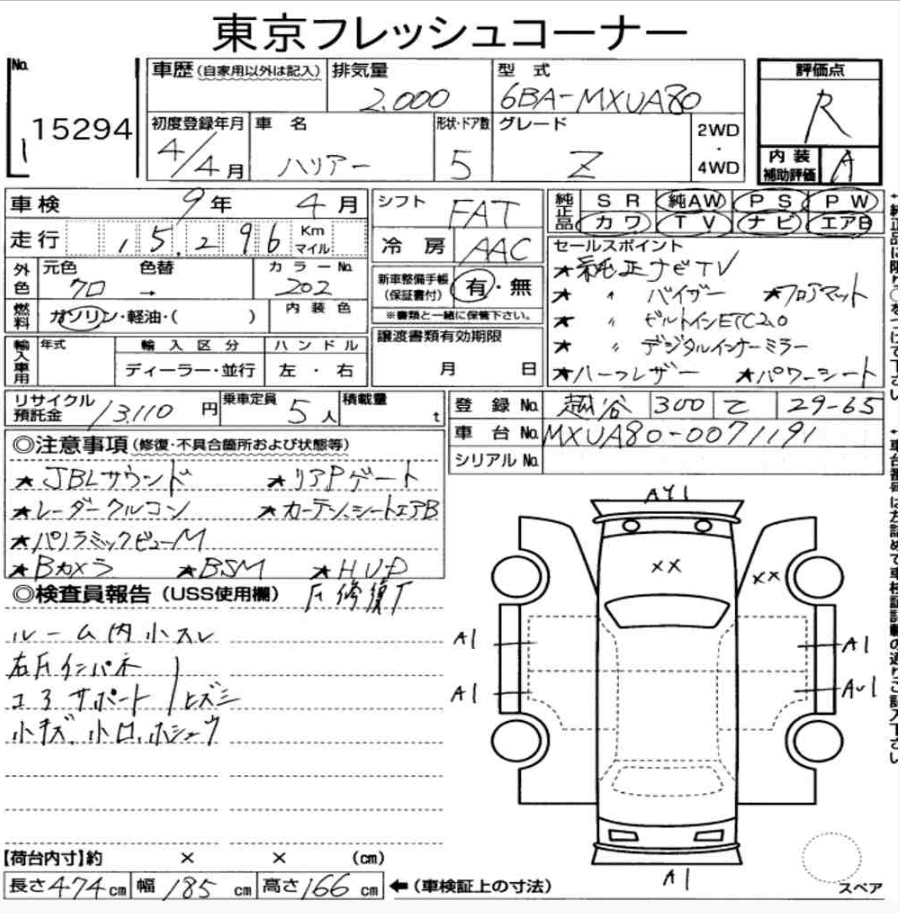 東京フレッシュコーナー
No. 15294
車歴(自家用以外は記入) 排気量 2.000 型式 6BA-MXUA80
評価点 R
初度登録年月 4/4月 車名 ハリアー 形状・ドア数 5 グレード Z 2WD・4WD
内装補助評価 A
車検 9年 4月
走行 15.296 Km マイル
外色 元色 クロ 色替 → カラーNo. 202
燃料 ガソリン・軽油・( ) 内装色
輸入車用 年式 輸入区分 ディーラー・並行 ハンドル 左・右
シフト FAT
冷房 AAC
新車整備手帳(保証書付) 有・無
※書類と一緒に保管下さい。
譲渡書類有効期限 月 日
純正品 SR 純AW PS PW
カワ TV ナビ エアB
セールスポイント
★純正ナビTV
★ 〃 バイザー ★フロアマット
★ 〃 ビルトインETC2.0
★ 〃 デジタルインナーミラー
★ハーフレザー ★パワーシート
リサイクル預託金 13110円 乗車定員 5人 積載量 t
登録No. 越谷 300 て 29-65
車台No. MXUA80-0071191
シリアルNo.
◎注意事項(修復・不具合箇所および状態等)
★JBLサウンド ★リアPゲート
★レーダークルコン ★カーテン、シートエアB
★パノラミックビューM
★Bカメラ ★BSM ★HUD
◎検査員報告(USS使用欄)
ルーム内小スレ
右Fインパネ
コアサポート ヒズミ
小キズ、小凹、ホシュウ
AY1
XX
XX
A1
A1
A1
AU1
A1
スペア
【荷台内寸】約 × × (cm)
長さ474cm 幅185cm 高さ166cm ←(車検証上の寸法)